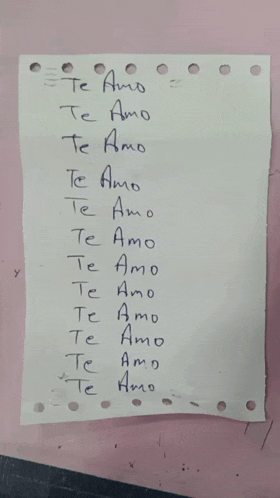 Te Amo
Te Amo
Te Amo
Te Amo
Te Amo
Te Amo
Te Amo
Te Amo
Te Amo
Te Amo
Te Amo
Te Amo